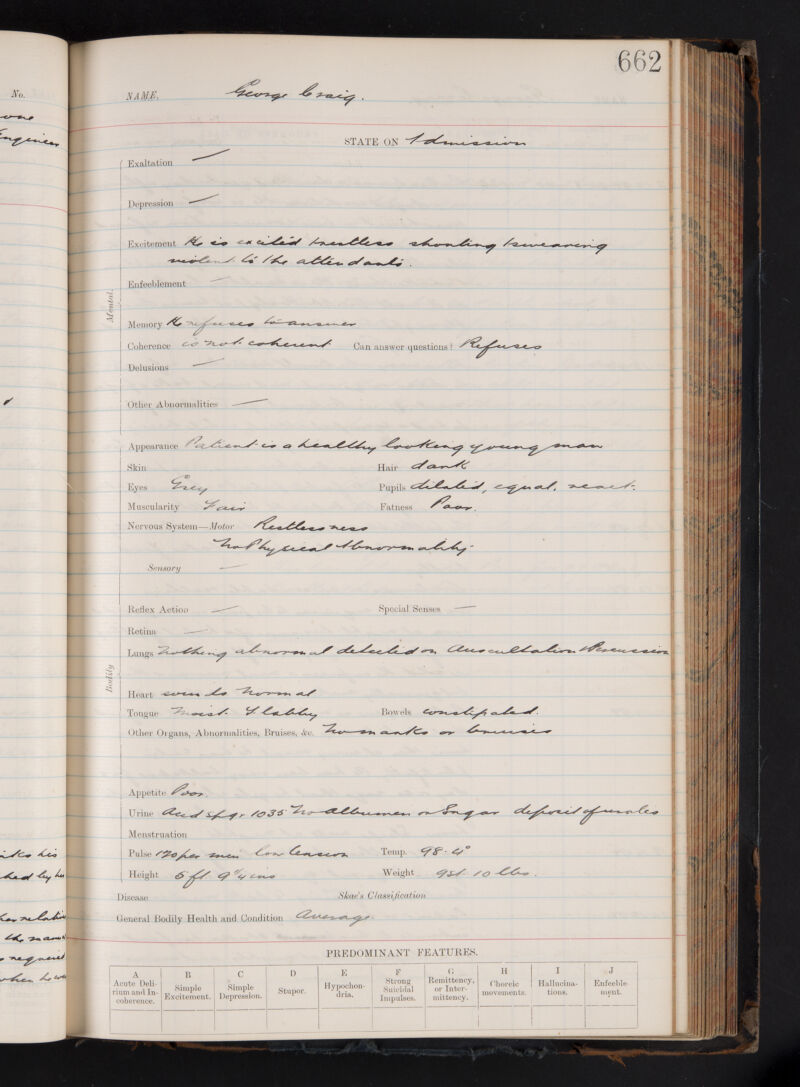 No.
662
NAME, George Craig.
STATE ON Admission
Exaltation —
Depression —
Excitement He is excited & restless shouting & swearing
violent to the attendants.
Enfeeblement —
Mental.
Memory He refuses to answer
Coherence is not coherent Can answer questions? Refuses
Delusions —
Other Abnormalities —
Appearance Patient is a healthy looking young man
Skin Hair dark
Eyes Grey Pupils dilated, equal, react.
Muscularity Fair Fatness Poor.
Nervous System—Motor Restlessness
No Physical Abnormality
Sensory —
Reflex Action — Special Senses —
Retina —
Lungs Nothing abnormal detected on Auscultation & Percussion
Bodily
Heart sounds normal
Tongue moist. flabby Bowels constipated.
Other Organs, Abnormalities, Bruises, &c. No marks or bruises
Appetite Poor.
Urine Acid sp. gr. 1035 No albumen or Sugar deposit of urates
Menstruation
Pulse 120 per min low tension Temp. 98.4°
Height 5 ft 9 ins Weight 9st. 10 lbs.
Disease Skae's Classification
General Bodily Health and Condition Average.
PREDOMINANT FEATURES.
A B C D E F G H I J
Acute Delirium and Incoherence. Simple Excitement. Simple Depression. Stupor. Hypochondria. Strong Suicidal Impulses. Remittency, or Intermittency. Choreic movements. Hallucinations. Enfeeblement.